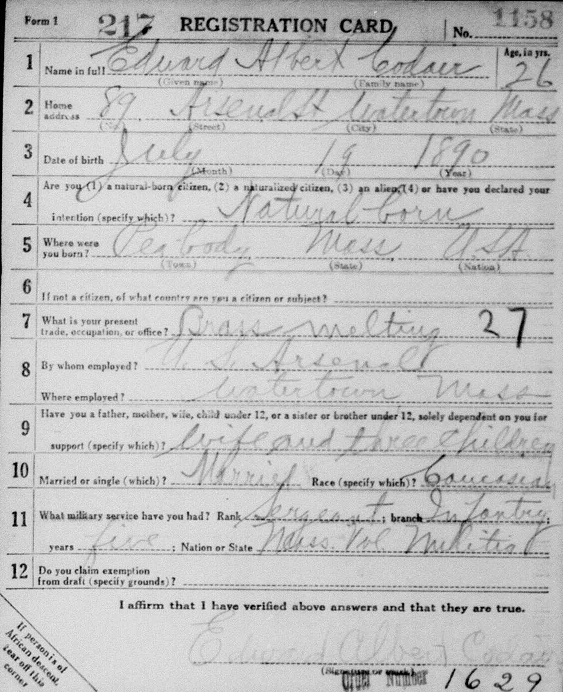 Form 1 217 REGISTRATION CARD No. 1158
1 Name in full Edward Albert Codair Age, in yrs. 26
(Given name) (Family name)
2 Home address 89 Arsenal St Watertown Mass
(No.) (Street) (City) (State)
3 Date of birth July 19 1890
(Month) (Day) (Year)
4 Are you (1) a natural-born citizen, (2) a naturalized citizen, (3) an alien, (4) or have you declared your
intention (specify which)? Natural born
5 Where were you born? Peabody Mass. U.S.A.
(Town) (State) (Nation)
6 If not a citizen, of what country are you a citizen or subject?
7 What is your present trade, occupation, or office? Brass melting 27
8 By whom employed? U. S. Arsenal
Where employed? Watertown Mass
9 Have you a father, mother, wife, child under 12, or a sister or brother under 12, solely dependent on you for
support (specify which)? Wife and three children
10 Married or single (which)? Married Race (specify which)? Caucasian
11 What military service have you had? Rank Sergeant; branch Infantry;
years five; Nation or State Mass. Vol. Militia
12 Do you claim exemption from draft (specify grounds)?
I affirm that I have verified above answers and that they are true.
Edward Albert Codair
If person is of
African descent,
tear off this
corner
Order Number 1629